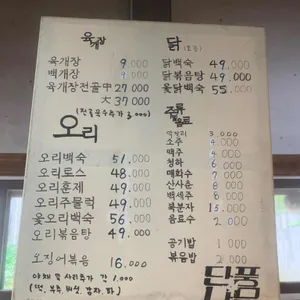 육개장
육개장 9,000
백개장 9,000
육개장전골 中 27,000
大 37,000
(전골육수추가 3,000)
오리
오리백숙 51,000
오리로스 48,000
오리훈제 49,000
오리주물럭 49,000
옻오리백숙 56,000
오리볶음탕 49,000
오징어볶음 16,000
야채 및 사리추가 각 1,000
(떡, 부추, 버섯, 감자, 파)
닭 (토종)
닭백숙 49,000
닭볶음탕 49,000
옻닭백숙 55,000
주류
음료
막걸리 3,000
소주 4,000
맥주 4,000
청하 6,000
매화수 7,000
산사춘 8,000
백세주 8,000
복분자 15,000
음료수 2,000
공기밥 1,000
볶음밥 2,000
단풍